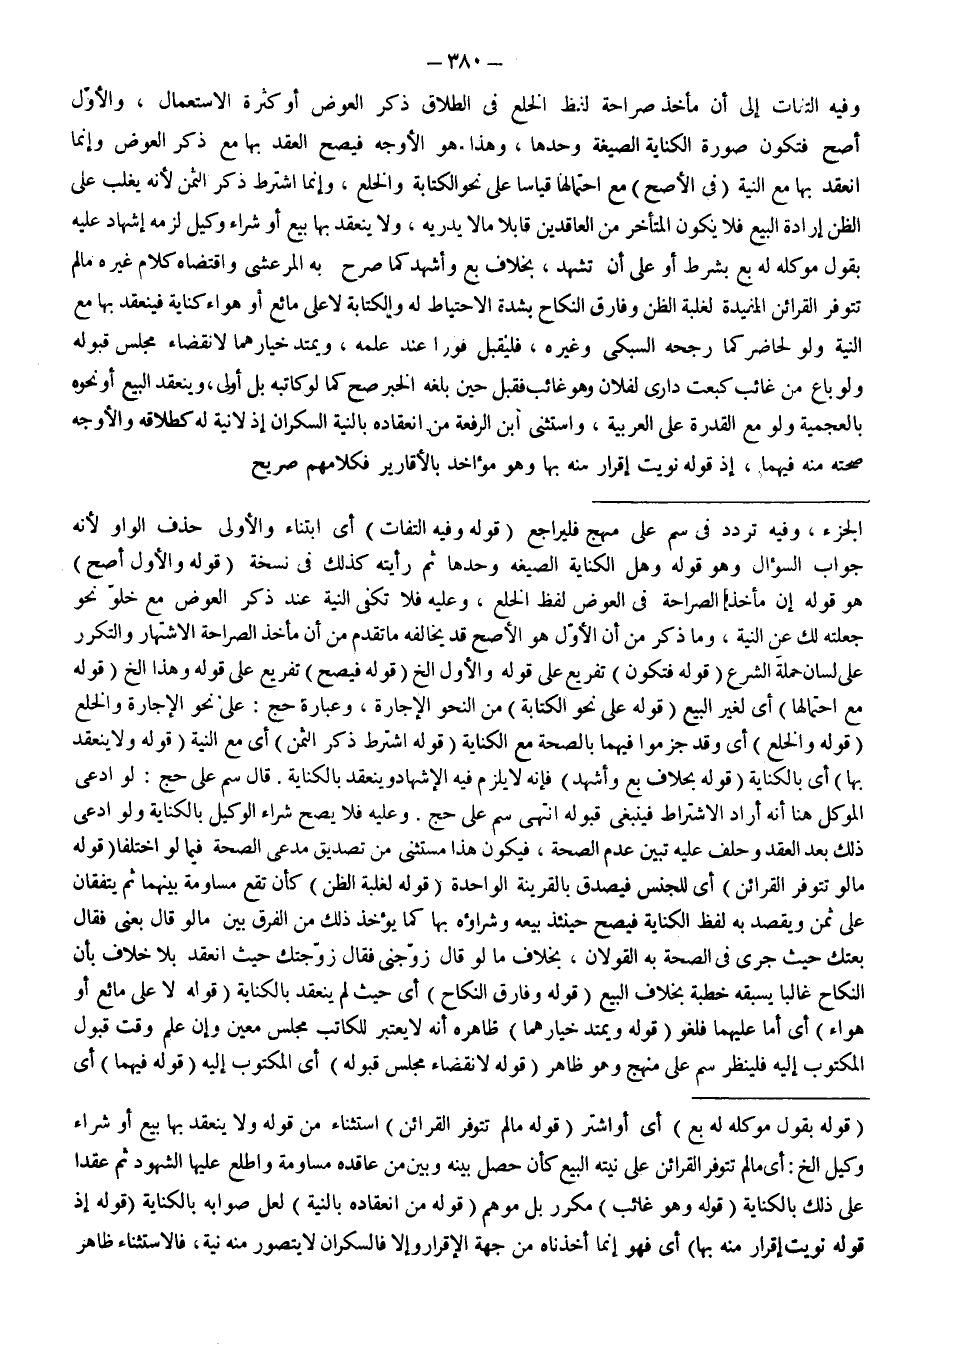 — ٣٨٠ —
وفيه التفات إلى أن مأخذ صراحة لفظ الخلع فى الطلاق ذكر العوض أو كثرة الاستعمال ، والأوّل
أصح فتكون صورة الكناية الصيغة وحدها ، وهذا هو الأوجه فيصح العقد بها مع ذكر العوض وإنما
انعقد بها مع النية ( فى الأصح ) مع احتمالها قياسا على نحو الكتابة والخلع ، وإنما اشترط ذكر الثمن لأنه يغلب على
الظن إرادة البيع فلا يكون المتأخر من العاقدين قابلا مالا يدريه ، ولا ينعقد بها بيع أو شراء وكيل لزمه إشهاد عليه
بقول موكله له بع بشرط أو على أن تشهد ، بخلاف بع وأشهد كما صرح به المرعشى واقتضاه كلام غيره مالم
تتوفر القرائن المفيدة لغلبة الظن وفارق النكاح بشدة الاحتياط له والكتابة لاعلى مائع أو هواء كناية فينعقد بها مع
النية ولو لحاضر كما رجحه السبكى وغيره ، فليقبل فورا عند علمه ، ويمتد خيارهما لانقضاء مجلس قبوله
ولو باع من غائب كبعت دارى لفلان وهو غائب فقبل حين بلغه الخبر صح كما لو كاتبه بل أولى ، وينعقد البيع أو نحوه
بالعجمية ولو مع القدرة على العربية ، واستثنى ابن الرفعة من انعقاده بالنية السكران إذ لانية له كطلاقه والأوجه
صحته منه فيهما ، إذ قوله نويت إقرار منه بها وهو مؤاخذ بالأقارير فكلامهم صريح
الجزء ، وفيه تردد فى سم على منهج فليراجع ( قوله وفيه التفات ) أى ابتناء والأولى حذف الواو لأنه
جواب السؤال وهو قوله وهل الكناية الصيغه وحدها ثم رأيته كذلك فى نسخة ( قوله والأول أصح )
هو قوله إن مأخذ الصراحة فى العوض لفظ الخلع ، وعليه فلا تكفى النية عند ذكر العوض مع خلوّ نحو
جعلته لك عن النية ، وما ذكر من أن الأوّل هو الأصح قد يخالفه ماتقدم من أن مأخذ الصراحة الاشتهار والتكرر
على لسان حملة الشرع ( قوله فتكون ) تفريع على قوله والأول الخ ( قوله فيصح ) تفريع على قوله وهذا الخ ( قوله
مع احتمالها ) أى لغير البيع ( قوله على نحو الكتابة ) من النحو الإجارة ، وعبارة حج : على نحو الإجارة والخلع
( قوله والخلع ) أى وقد جزموا فيهما بالصحة مع الكناية ( قوله اشترط ذكر الثمن ) أى مع النية ( قوله ولاينعقد
بها ) أى بالكناية ( قوله بخلاف بع وأشهد ) فإنه لايلزم فيه الإشهاد وينعقد بالكناية . قال سم على حج : لو ادعى
الموكل هنا أنه أراد الاشتراط فينبغى قبوله انتهى سم على حج . وعليه فلا يصح شراء الوكيل بالكناية ولو ادعى
ذلك بعد العقد وحلف عليه تبين عدم الصحة ، فيكون هذا مستثنى من تصديق مدعى الصحة فيما لو اختلفا ( قوله
مالو تتوفر القرائن ) أى للجنس فيصدق بالقرينة الواحدة ( قوله لغلبة الظن ) كأن تقع مساومة بينهما ثم يتفقان
على ثمن ويقصد به لفظ الكناية فيصح حينئذ بيعه وشراؤه بها كما يؤخذ ذلك من الفرق بين مالو قال بعنى فقال
بعتك حيث جرى فى الصحة به القولان ، بخلاف ما لو قال زوّجنى فقال زوّجتك حيث انعقد بلا خلاف بأن
النكاح غالبا يسبقه خطبة بخلاف البيع ( قوله وفارق النكاح ) أى حيث لم ينعقد بالكناية ( قوله لا على مائع أو
هواء ) أى أما عليهما فلغو ( قوله ويمتد خيارهما ) ظاهره أنه لايعتبر للكاتب مجلس معين وإن علم وقت قبول
المكتوب إليه فلينظر سم على منهج وهو ظاهر ( قوله لانقضاء مجلس قبوله ) أى المكتوب إليه ( قوله فيهما ) أى
( قوله بقول موكله له بع ) أى أواشتر ( قوله مالم تتوفر القرائن ) استثناء من قوله ولا ينعقد بها بيع أو شراء
وكيل الخ : أى مالم تتوفر القرائن على نيته البيع كأن حصل بينه وبين من عاقده مساومة واطلع عليها الشهود ثم عقدا
على ذلك بالكناية ( قوله وهو غائب ) مكرر بل موهم ( قوله من انعقاده بالنية ) لعل صوابه بالكناية ( قوله إذ
قوله نويت إقرار منه بها) أى فهو إنما أخذناه من جهة الإقرار وإلا فالسكران لايتصور منه نية ، فالاستثناء ظاهر